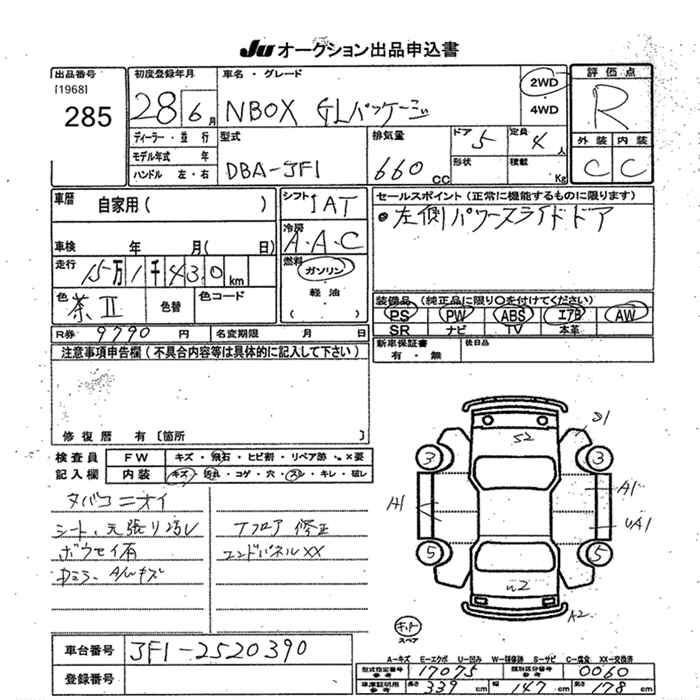 JU オークション出品申込書
出品番号
[1968]
285
初度登録年月
28 6月
車名・グレード
NBOX GLパッケージ
2WD
4WD
評価点
R
外装 内装
C C
ディーラー・並行
モデル年式 年
ハンドル 左・右
型式
DBA-JF1
排気量
660 cc
ドア 5
定員 4人
形状
積載 Kg
車歴 自家用( )
車検 年 月( 日)
走行 15万1千430km
色 茶Ⅱ
色替
色コード
シフト IAT
冷房 A.A.C
燃料
ガソリン
軽油
( )
セールスポイント(正常に機能するものに限ります)
●左側パワースライドドア
装備品(純正品に限り○を付けてください)
PS PW ABS エアB AW
SR ナビ TV 本革
R券 9790円
名変期限 月 日
新車保証書
有・無
後日品
注意事項申告欄(不具合内容等は具体的に記入して下さい)
修復歴 有〔箇所 〕
検査員
記入欄
FW キズ・飛石・ヒビ割・リペア跡・×要
内装 キズ・汚れ・コゲ・穴・スレ・キレ・破レ
タバコニオイ
シート、天張り汚レ
ボウセイ有
Tフロア修正
エンドパネルXX
S2
3 3
A1
A1
5 5
A2
キット
スペア
車台番号 JF1-2520390
登録番号
A-キズ E-エクボ U-凹み W-補修跡 S-サビ C-腐食 XX-交換済
型式指定番号 参考 17075
類別区分番号 参考 0060
車庫証明用 参考 長さ 339cm 幅 147cm 高さ 178cm